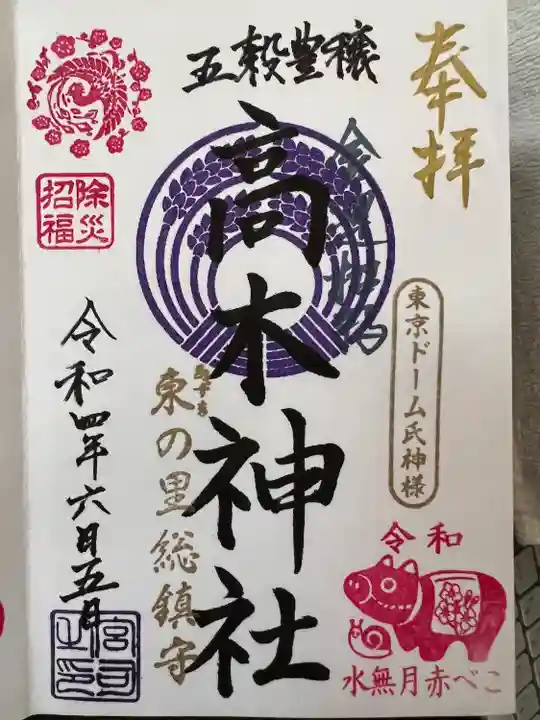 奉拝
東京ドーム氏神様
五穀豊穣
高木神社
東の里総鎮守
除災
招福
令和四年六月五日
宮司
之印
令和
水無月赤べこ